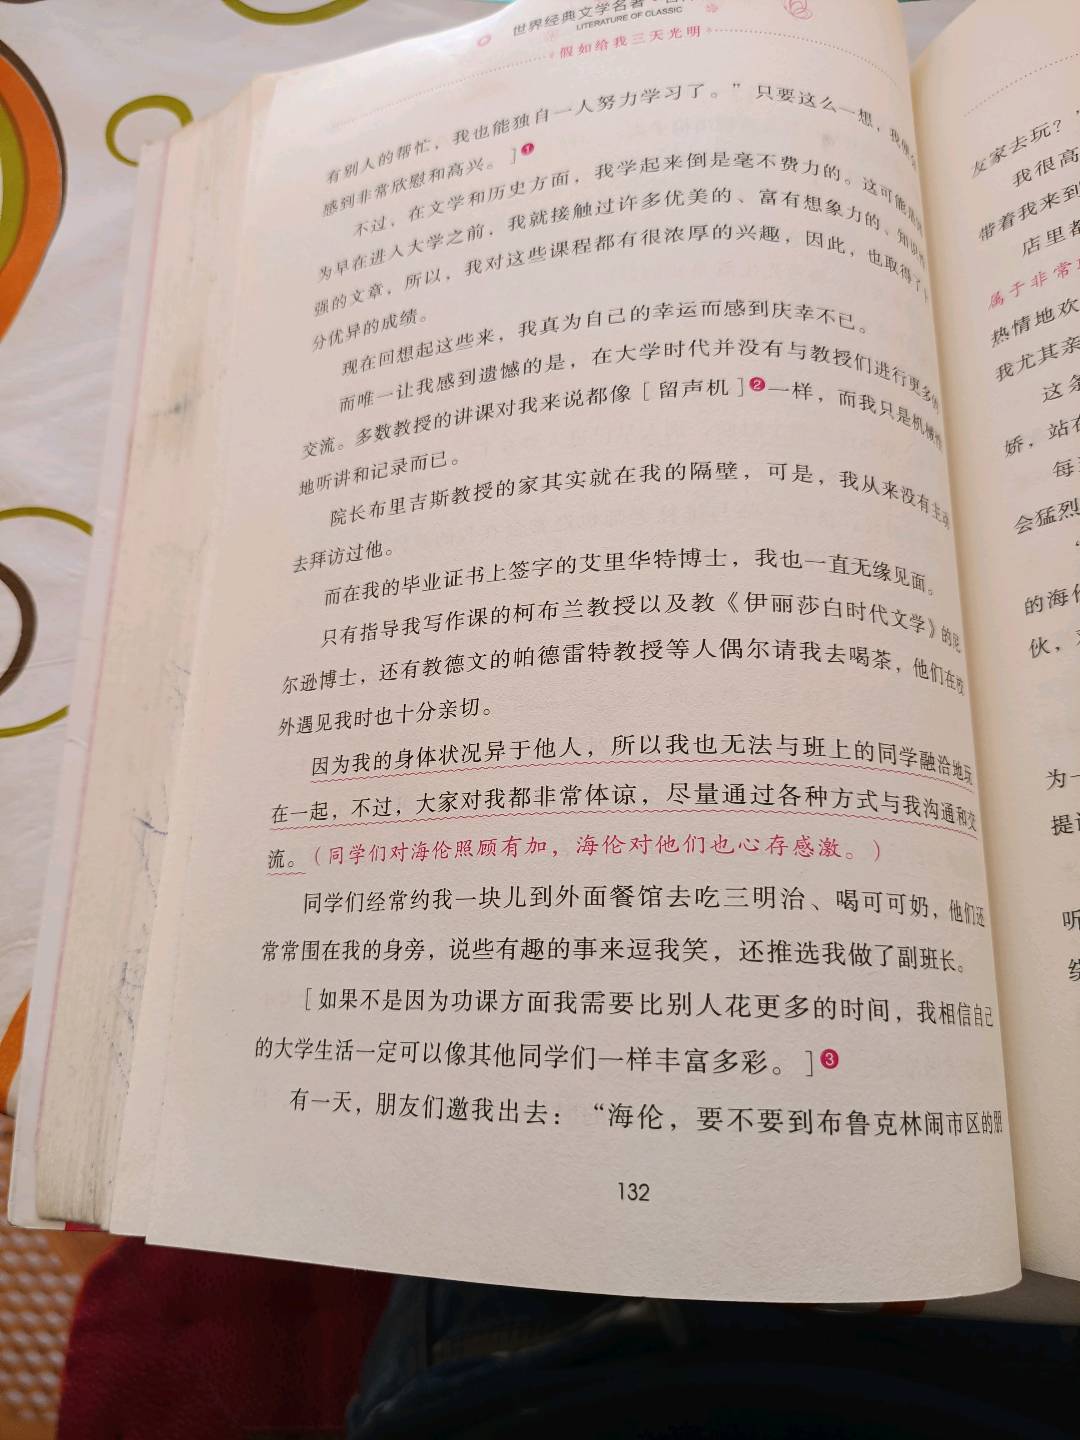 世界经典文学名著
LITERATURE OF CLASSIC
假如给我三天光明
有别人的帮忙，我也能独自一人努力学习了。”只要这么一想，我
感到非常欣慰和高兴。]1
不过，在文学和历史方面，我学起来倒是毫不费力的。这可能是
为早在进入大学之前，我就接触过许多优美的、富有想象力的、知识
强的文章，所以，我对这些课程都有很浓厚的兴趣，因此，也取得了十
分优异的成绩。
现在回想起这些来，我真为自己的幸运而感到庆幸不已。
而唯一让我感到遗憾的是，在大学时代并没有与教授们进行更多的
交流。多数教授的讲课对我来说都像[留声机]2一样，而我只是机械性
地听讲和记录而已。
院长布里吉斯教授的家其实就在我的隔壁，可是，我从来没有主动
去拜访过他。
而在我的毕业证书上签字的艾里华特博士，我也一直无缘见面。
只有指导我写作课的柯布兰教授以及教《伊丽莎白时代文学》的尼
尔逊博士，还有教德文的帕德雷特教授等人偶尔请我去喝茶，他们在校
外遇见我时也十分亲切。
因为我的身体状况异于他人，所以我也无法与班上的同学融洽地玩
在一起，不过，大家对我都非常体谅，尽量通过各种方式与我沟通和交
流。（同学们对海伦照顾有加，海伦对他们也心存感激。）
同学们经常约我一块儿到外面餐馆去吃三明治、喝可可奶，他们还
常常围在我的身旁，说些有趣的事来逗我笑，还推选我做了副班长。
[如果不是因为功课方面我需要比别人花更多的时间，我相信自己
的大学生活一定可以像其他同学们一样丰富多彩。]3
有一天，朋友们邀我出去：“海伦，要不要到布鲁克林闹市区的朋
132
友家去玩？”
我很高
带着我来到
店里都
属于非常
热情地欢
我尤其亲
这条
娇，站在
每
会猛烈
的海伦
伙，
为一
提
听